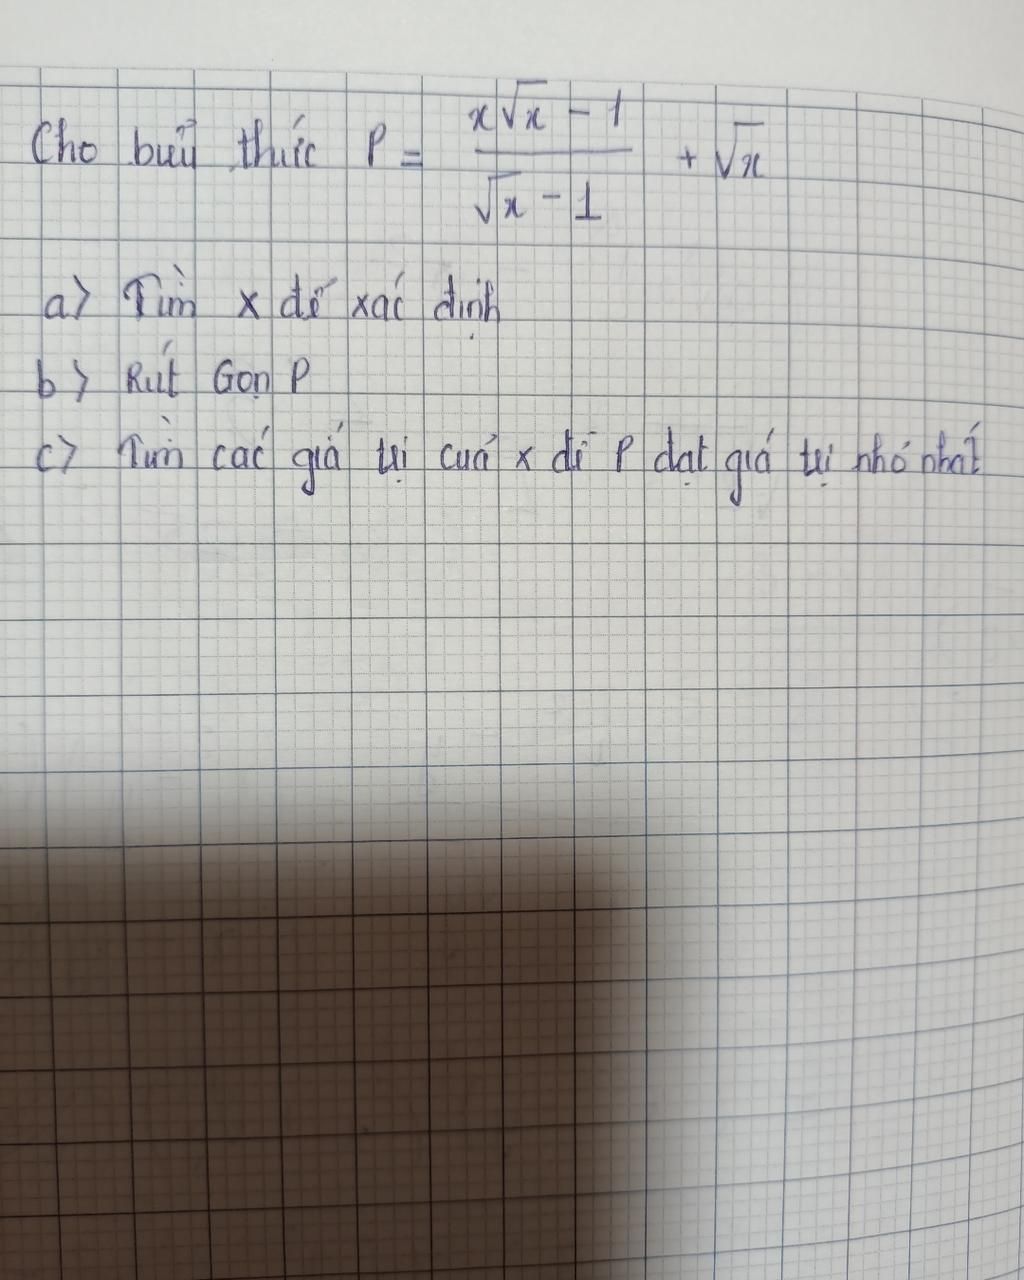 Cho biểu thức P = \frac{x\sqrt{x} - 1}{\sqrt{x} - 1} + \sqrt{x}
a> Tìm x để xác định
b> Rút Gọn P
c> Tìm các giá trị của x để P đạt giá trị nhỏ nhất